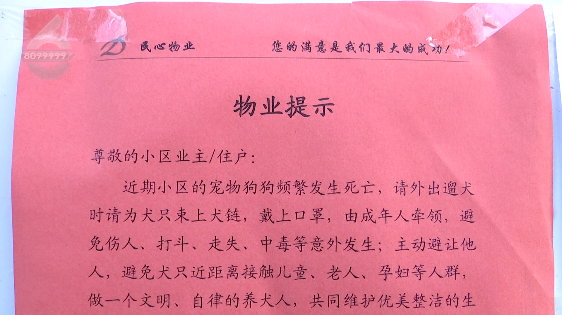 民心物业 您的满意是我们最大的成功!
8099999
物业提示
尊敬的小区业主/住户:
近期小区的宠物狗狗频繁发生死亡,请外出遛犬
时请为犬只束上犬链,戴上口罩,由成年人牵领,避
免伤人、打斗、走失、中毒等意外发生;主动避让他
人,避免犬只近距离接触儿童、老人、孕妇等人群,
做一个文明、自律的养犬人,共同维护优美整洁的生